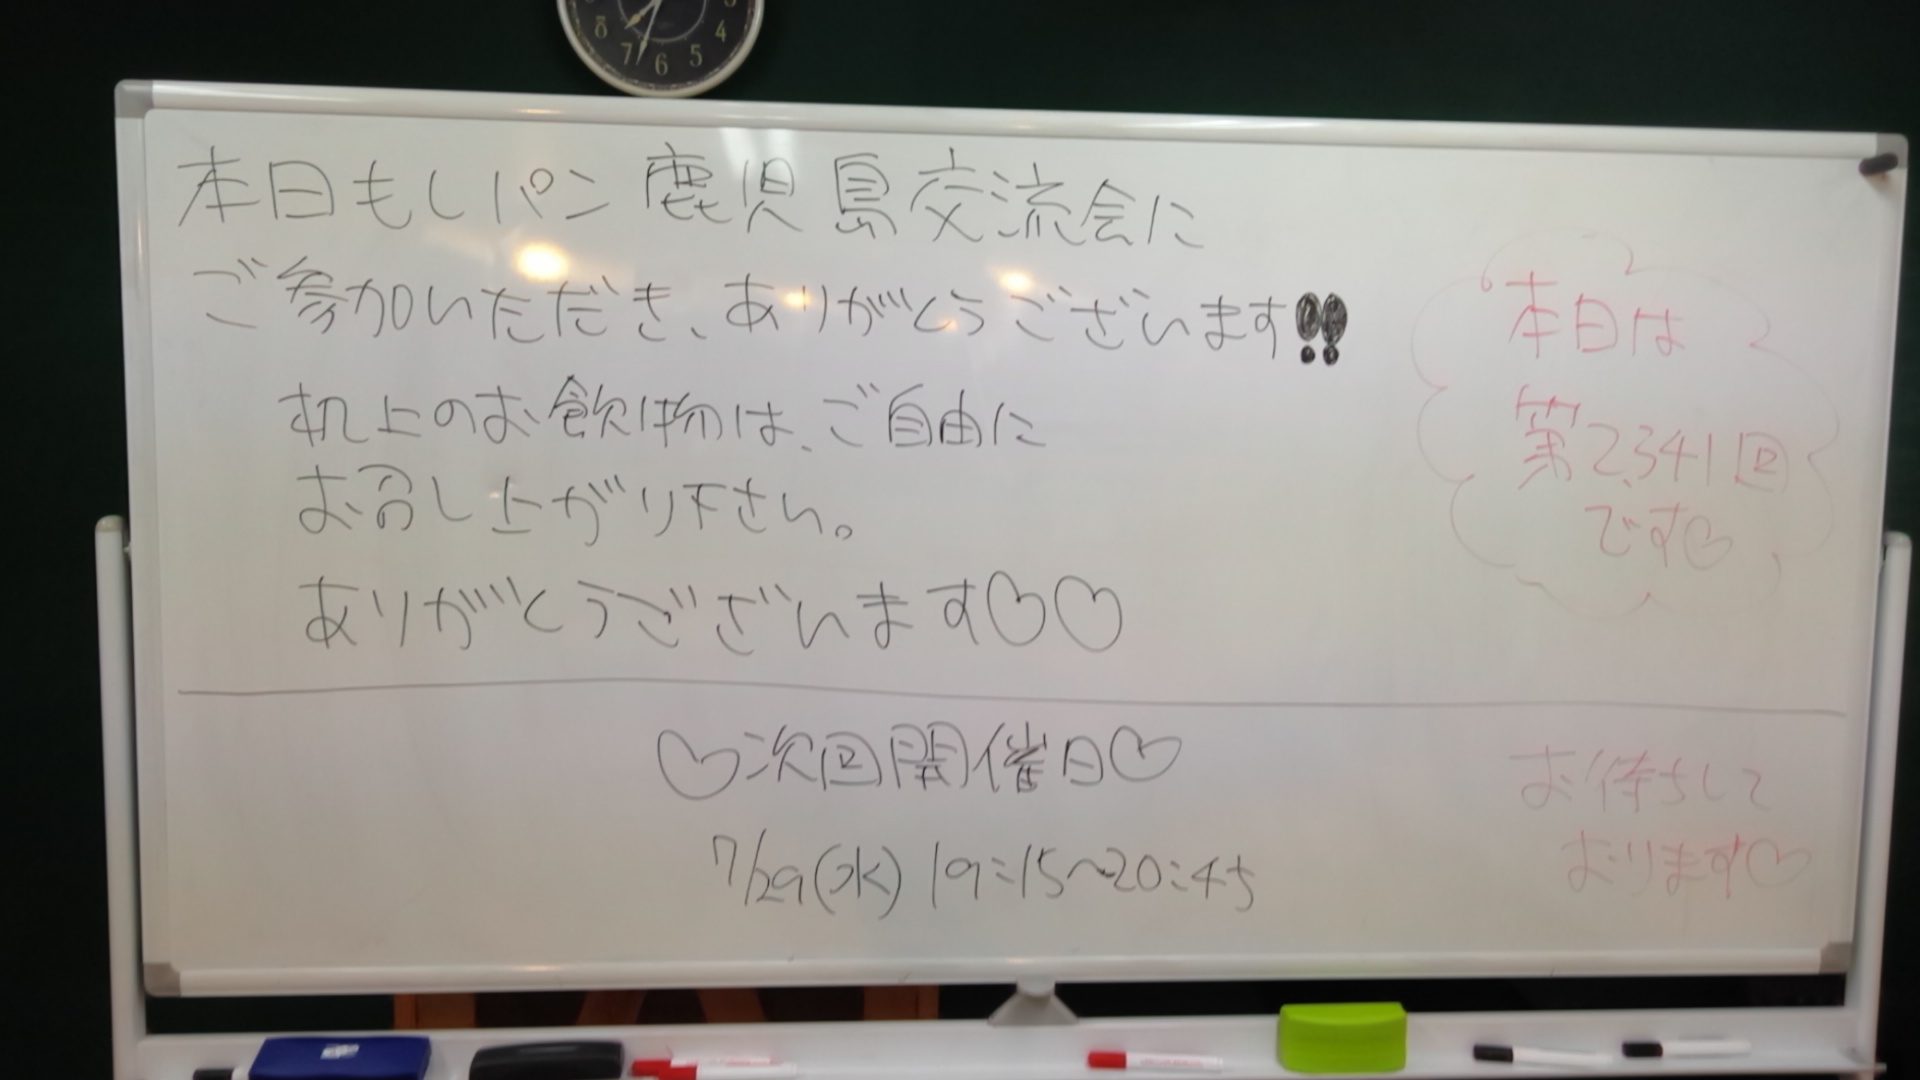 本日もしパン鹿児島交流会に
ご参加いただき、ありがとうございます!!
机上のお飲み物は、ご自由に
お召し上がり下さい。
ありがとうございます♡♡
本日は
第2,341回
です♡
♡次回開催日♡
7/29(水) 19:15~20:45
お待ちして
おります♡
8
7
6
5
4